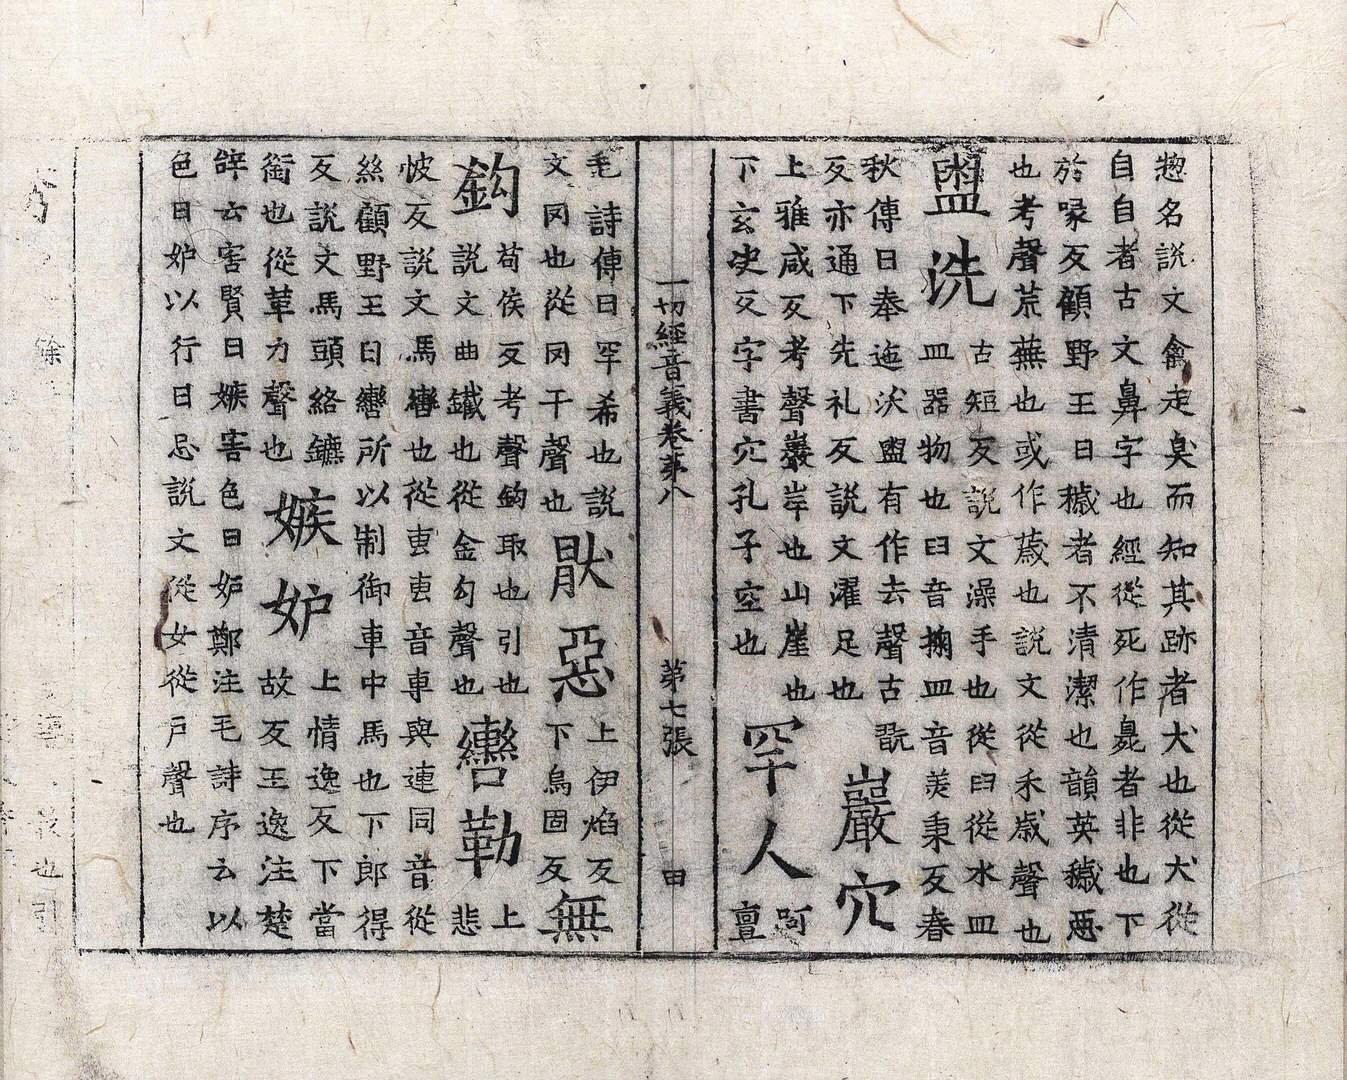 惣名說文禽走臭而知其跡者犬也從犬從
自自者古文鼻字也經從死作臰者非也下
於㖶反顧野王曰穢者不清潔也韻英穢惡
也考聲荒蕪也或作薉也說文從禾歲聲也
盥洗
古短反說文澡手也從臼從水皿
皿器物也臼音掬皿音美秉反春
秋傳曰奉迤沃盥有作去聲古翫
反亦通下先礼反說文濯足也
巖穴
上雅咸反考聲巖岸也山崖也
下玄决反字書穴孔子空也
罕人
呵
亶
一切經音義卷第八 第七張 田
毛詩傳曰罕希也說
文罔也從罔干聲也
猒惡
上伊焰反
下烏固反
無
鈎
苟侯反考聲鈎取也引也
說文曲鐵也從金勾聲也
轡勒
上
悲
帔反說文馬轡也從叀叀音專與連同音從
絲顧野王曰轡所以制御車中馬也下郎得
反說文馬頭絡鑣
銜也從革力聲也
嫉妒
上情逸反下當
故反王逸注楚
辭云害賢曰嫉害色曰妒鄭注毛詩序云以
色曰妒以行曰忌說文從女從戶聲也